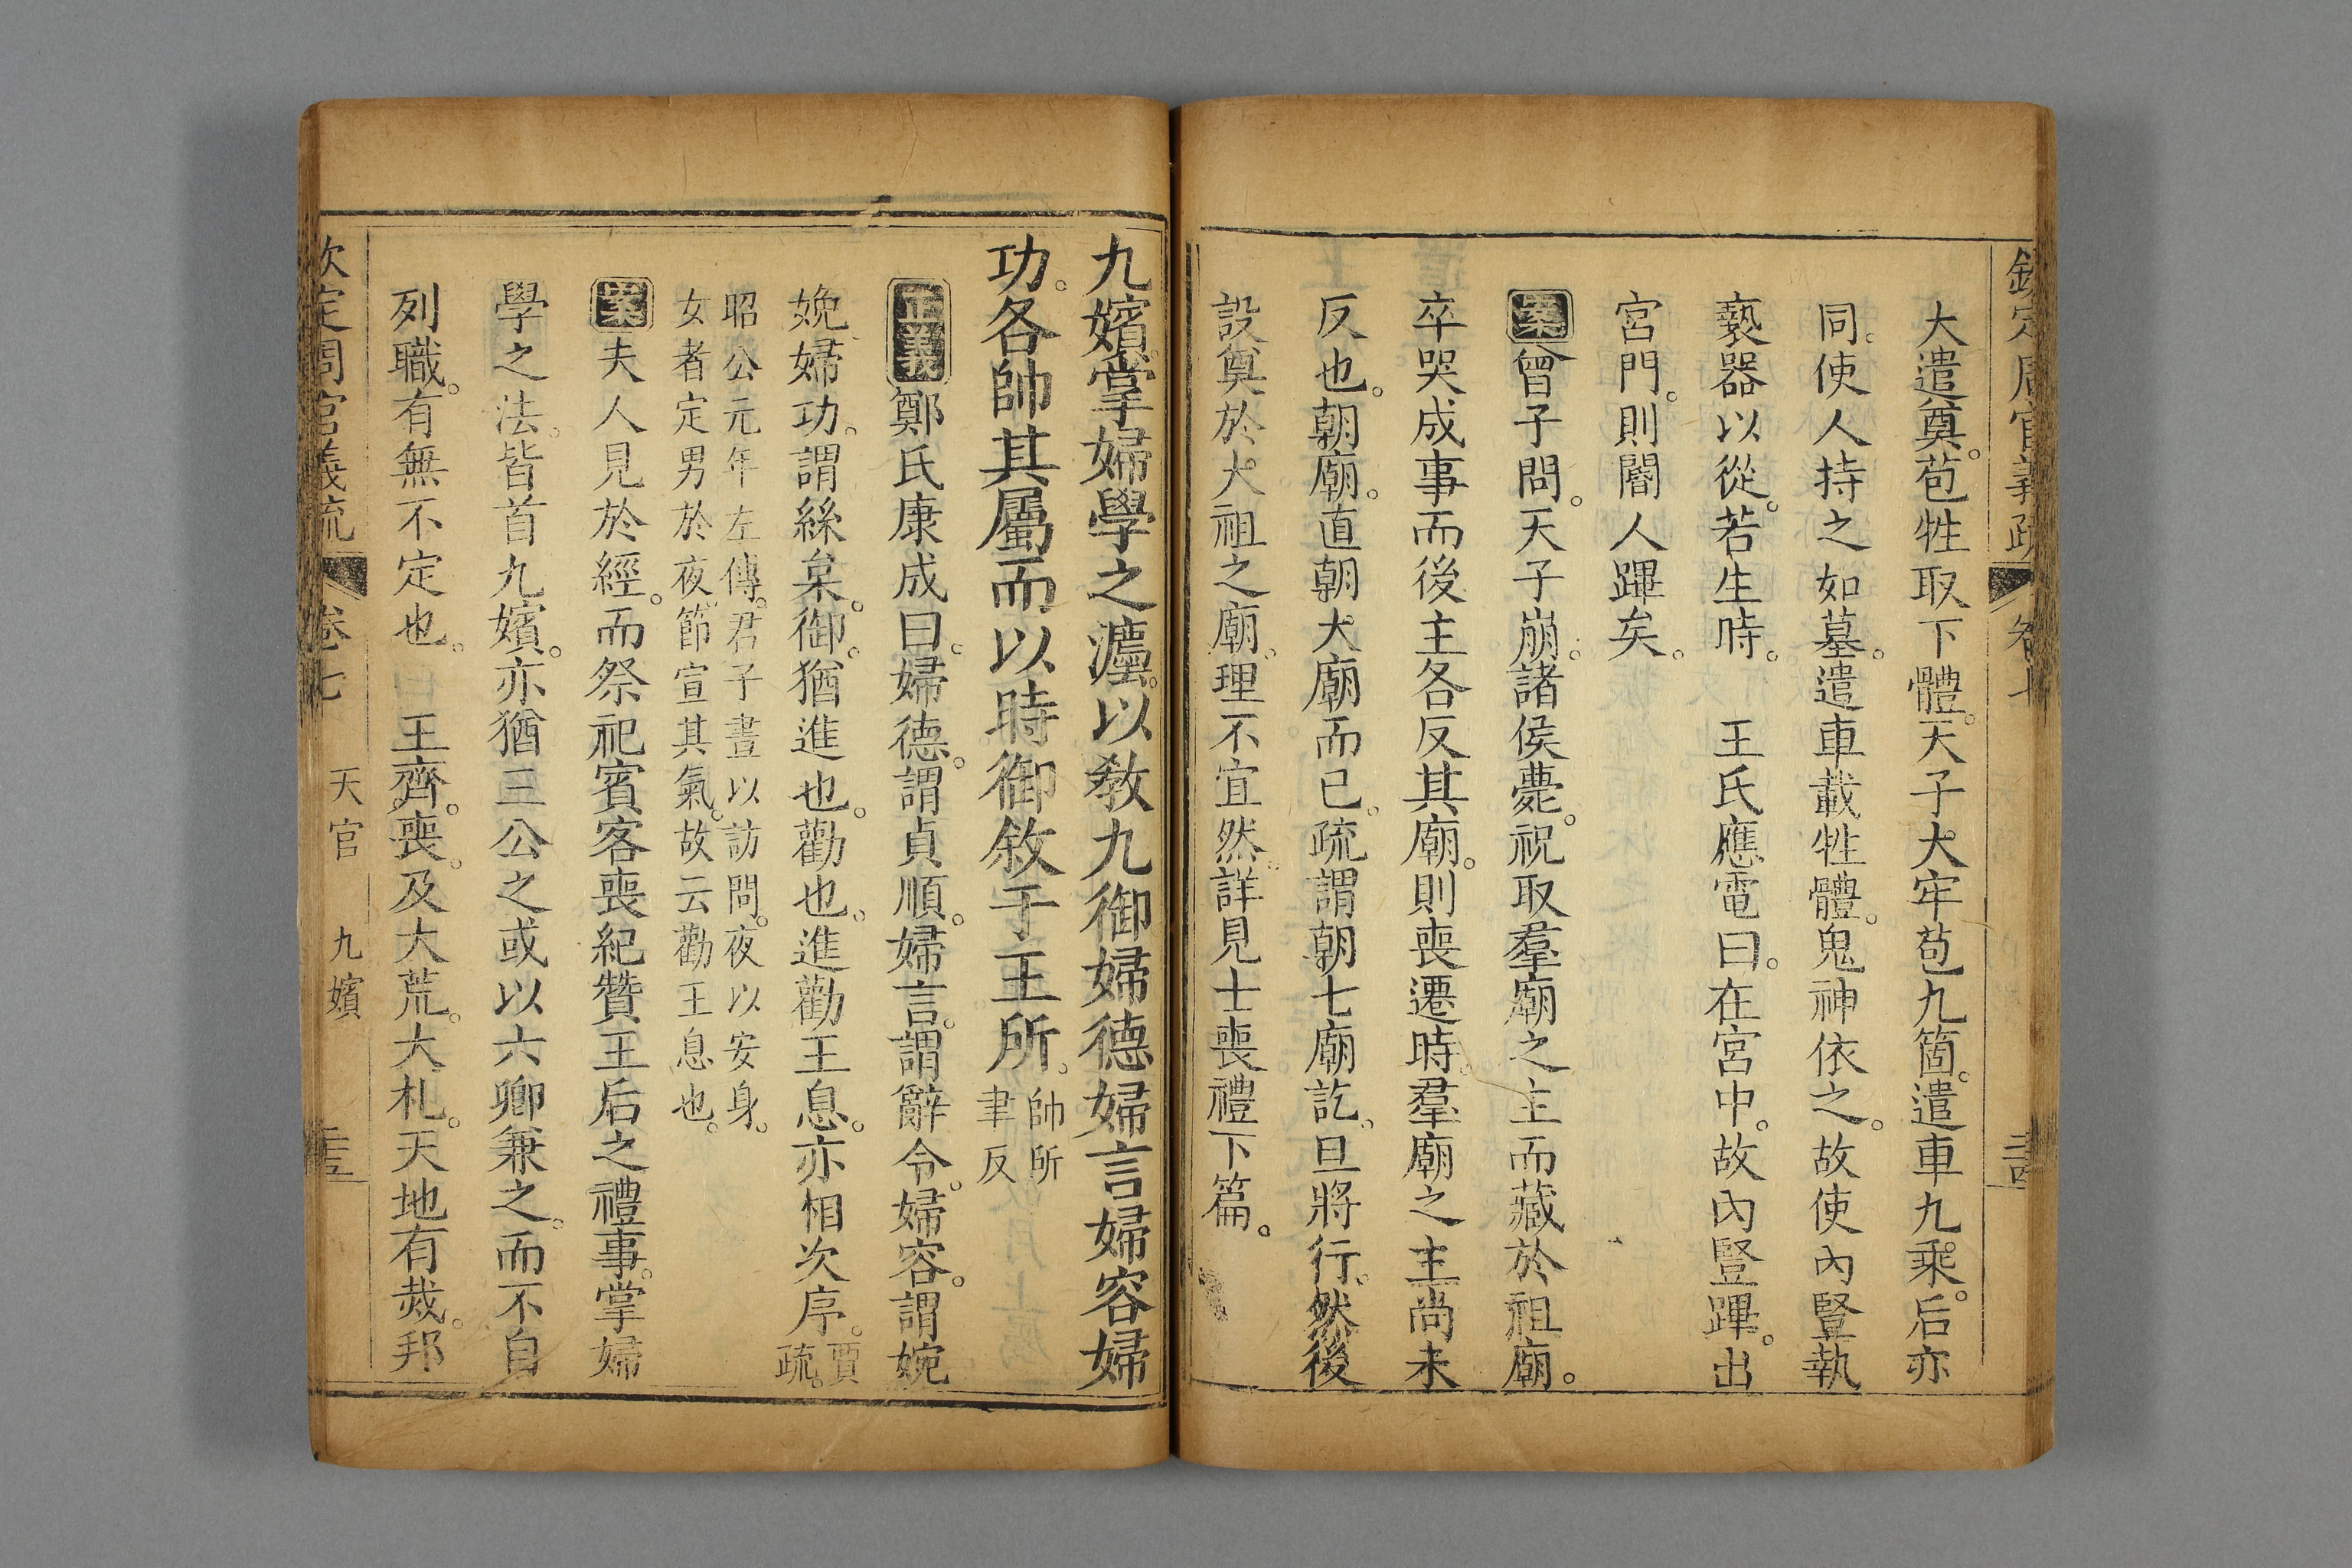 欽定周官義疏 卷七 三四
大遣奠。苞牲取下體。天子大牢苞九箇。遣車九乘。后亦
同。使人持之如墓。遣車載牲體。鬼神依之。故使內豎執
褻器以從。若生時。 王氏應電曰。在宮中。故內豎蹕。出
宮門。則閽人蹕矣。
案曾子問。天子崩。諸侯薨。祝取羣廟之主而藏於祖廟。
卒哭成事而後主各反其廟。則喪遷時。羣廟之主尚未
反也。朝廟。直朝大廟而已。疏謂朝七廟訖。旦將行。然後
設奠於大祖之廟。理不宜然。詳見士喪禮下篇。
九嬪掌婦學之灋。以敎九御婦德婦言婦容婦
功。各帥其屬而以時御敘于王所。帥所
聿反
正義鄭氏康成曰。婦德。謂貞順。婦言。謂辭令。婦容。謂婉
娩。婦功。謂絲枲。御。猶進也。勸也。進勸王息。亦相次序。賈
疏。
昭公元年左傳。君子晝以訪問。夜以安身。
女者定男於夜。節宣其氣。故云勸王息也。
案夫人見於經。而祭祀賓客喪紀贊王后之禮事。掌婦
學之法。皆首九嬪。亦猶三公之或以六卿兼之。而不自
列職。有無不定也。 王齊。喪。及大荒。大札。天地有烖。邦
欽定周官義疏 卷七 天官 九嬪 三五